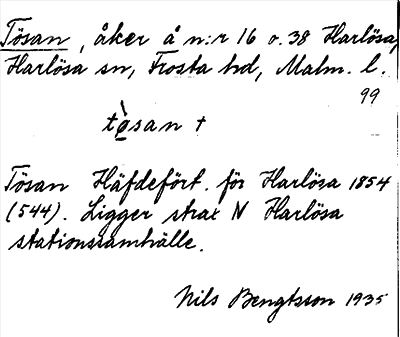 Tösan, åker å n:r 16 o. 38 Harlösa,
Harlösa sn, Frosta hd, Malm. l.
99
tø̀san †
Tösan Häfdefört. för Harlösa 1854
(544). Ligger strax N Harlösa
stationssamhälle.
Nils Bengtsson 1935